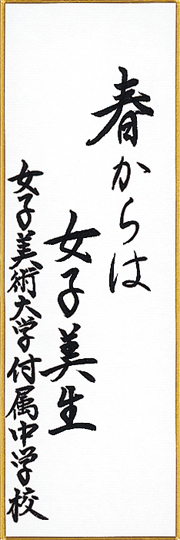 春からは
女子美生
女子美術大学付属中学校